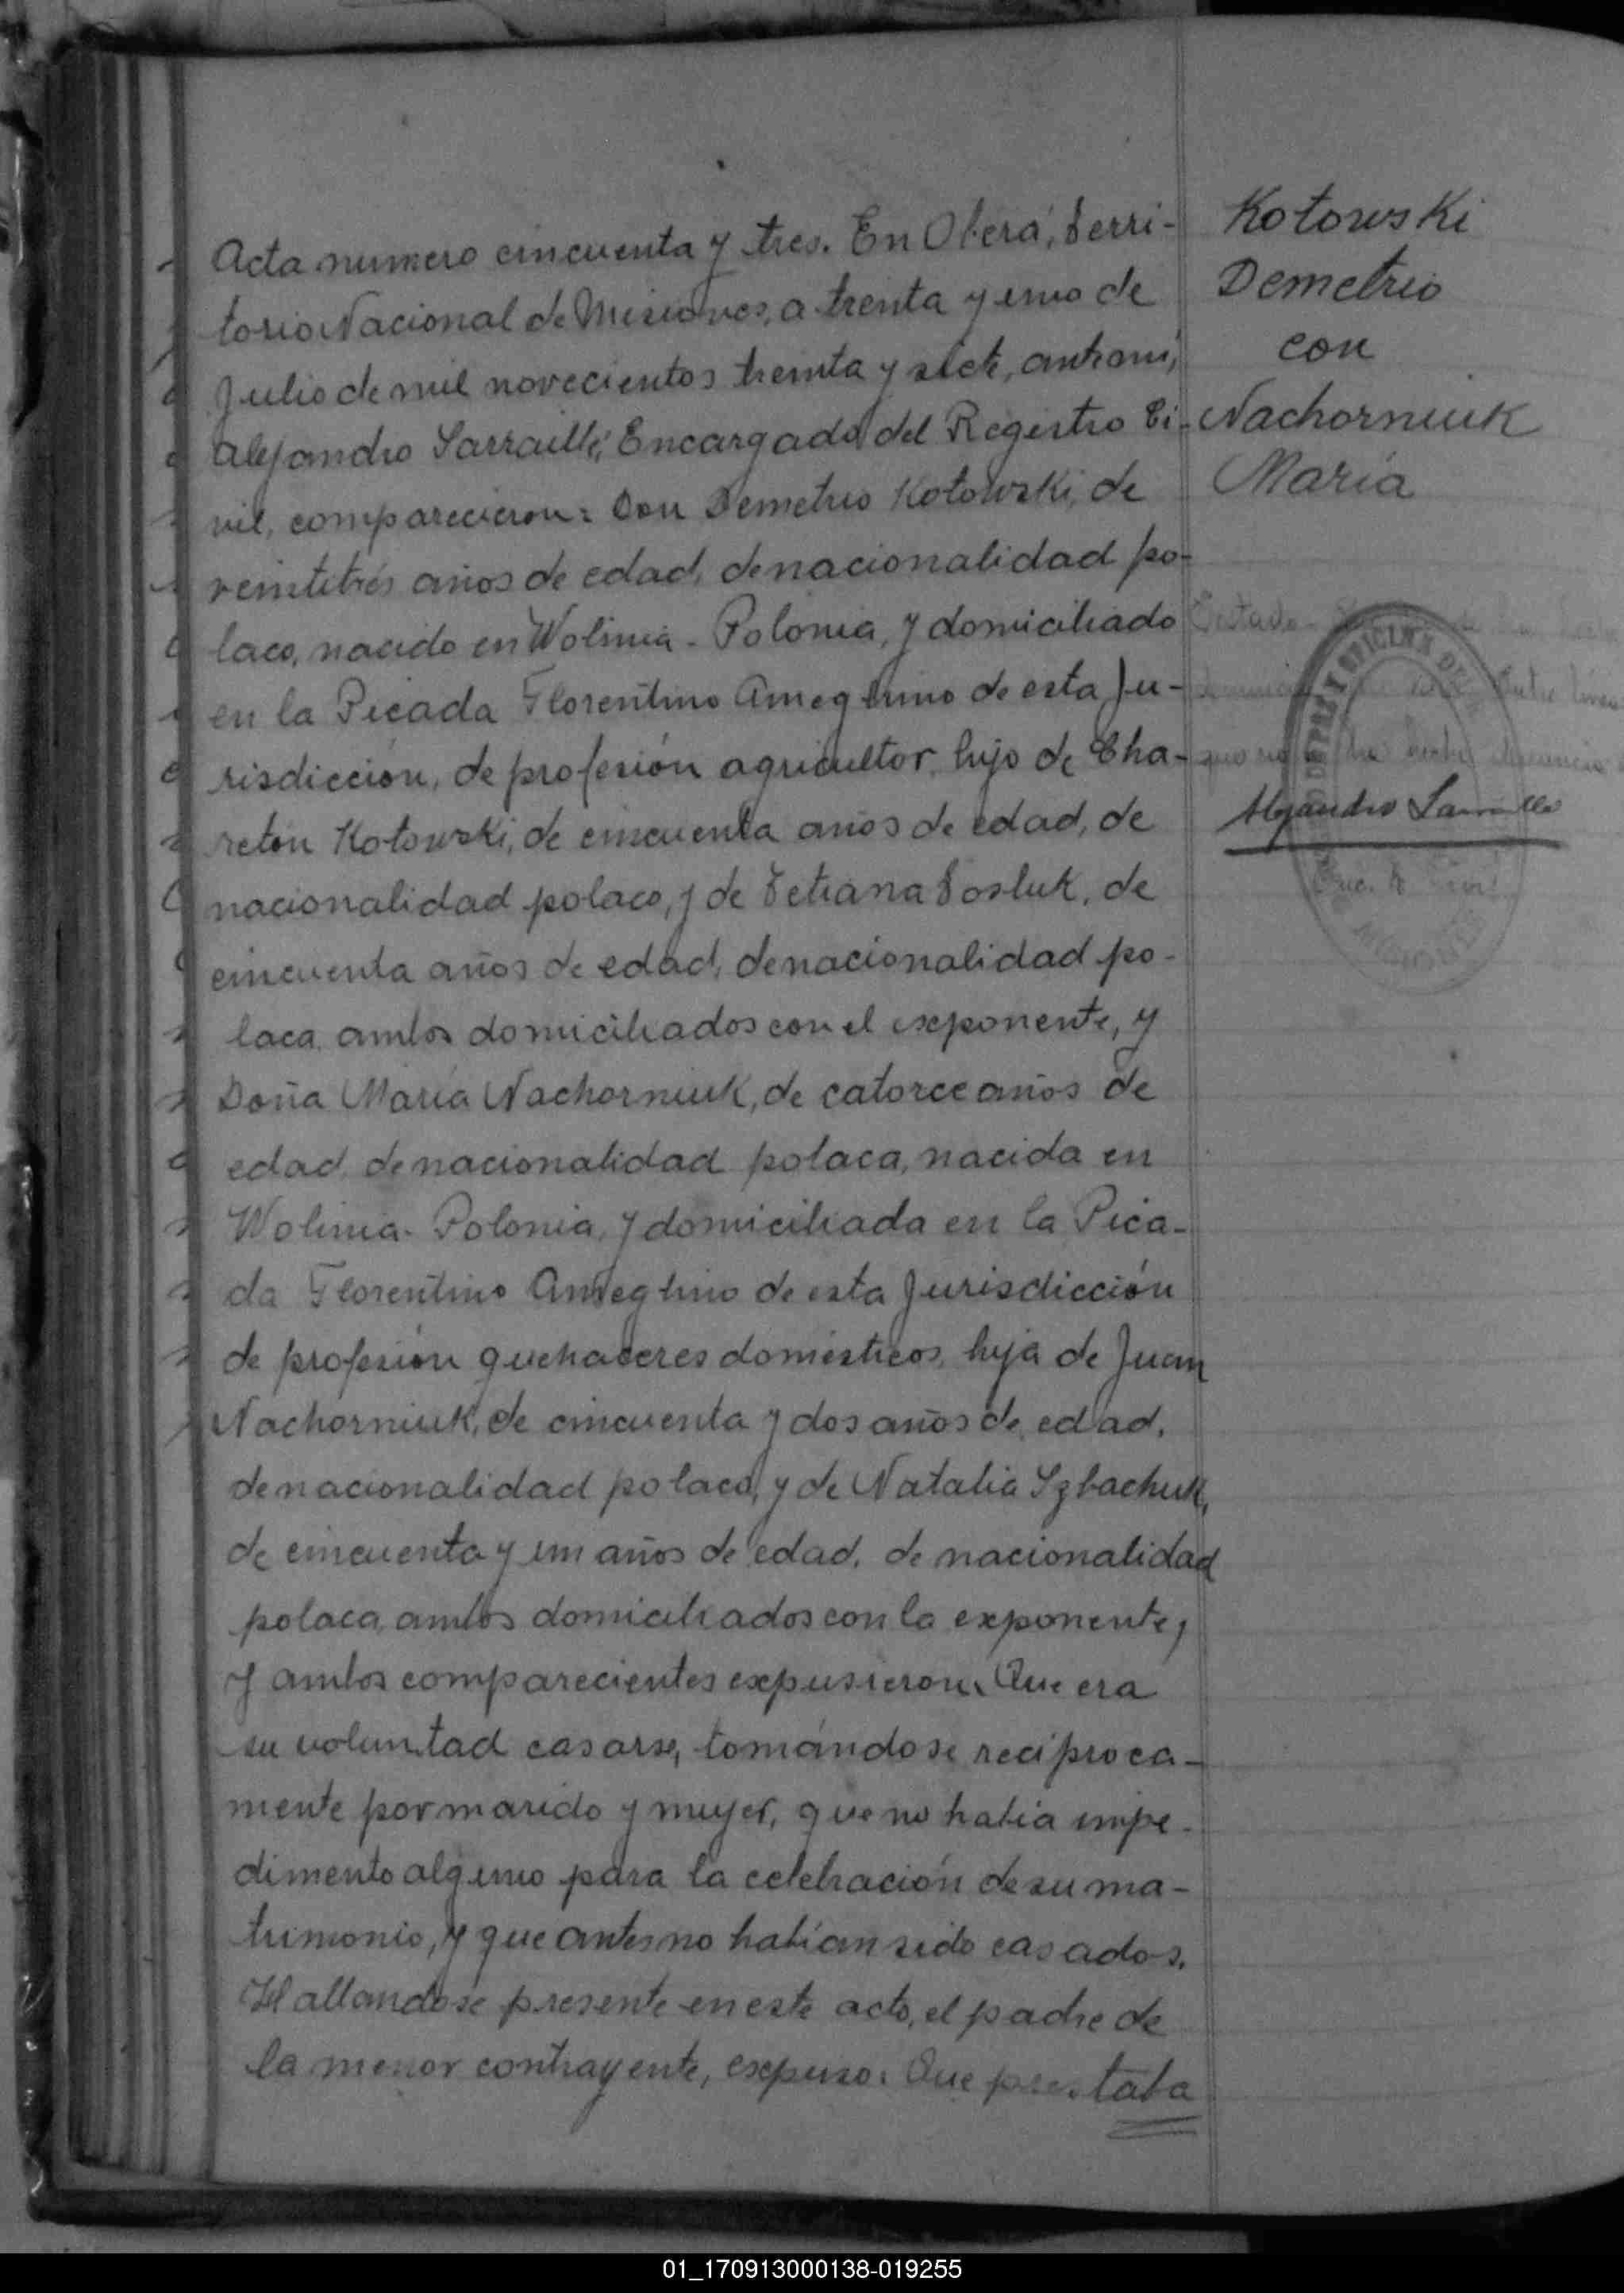 Acta numero cincuenta y tres. En Oberá, Terri-
torio Nacional de Misiones, a treinta y uno de
Julio de mil novecientos treinta y siete, ante mí,
Alejandro Sarraillé, Encargado del Registro Ci-
vil, comparecieron: Don Demetrio Kotowski, de
veintitrés años de edad, de nacionalidad po-
laco, nacido en Wolinia - Polonia, y domiciliado
en la Picada Florentino Ameghino de esta Ju-
risdicción, de profesión agricultor, hijo de Cha-
retón Kotowski, de cincuenta años de edad, de
nacionalidad polaco, y de Tetiana Tosluk, de
cincuenta años de edad, de nacionalidad po-
laca, ambos domiciliados con el exponente, y
Doña María Nachorniuk, de catorce años de
edad, de nacionalidad polaca, nacida en
Wolinia - Polonia, y domiciliada en la Pica-
da Florentino Ameghino de esta Jurisdicción
de profesión quehaceres domésticos, hija de Juan
Nachorniuk, de cincuenta y dos años de edad,
de nacionalidad polaco, y de Natalia Szbachuk,
de cincuenta y un años de edad, de nacionalidad
polaca, ambos domiciliados con la exponente,
y ambos comparecientes expusieron: Que era
su voluntad casarse, tomándose recíproca-
mente por marido y mujer, que no había impe-
dimento alguno para la celebración de su ma-
trimonio, y que antes no habían sido casados.
Hallandose presente en este acto, el padre de
la menor contrayente, expuso: Que prestaba
Kotowski
Demetrio
con
Nachorniuk
María
Alejandro Sarraillé
01_170913000138-019255